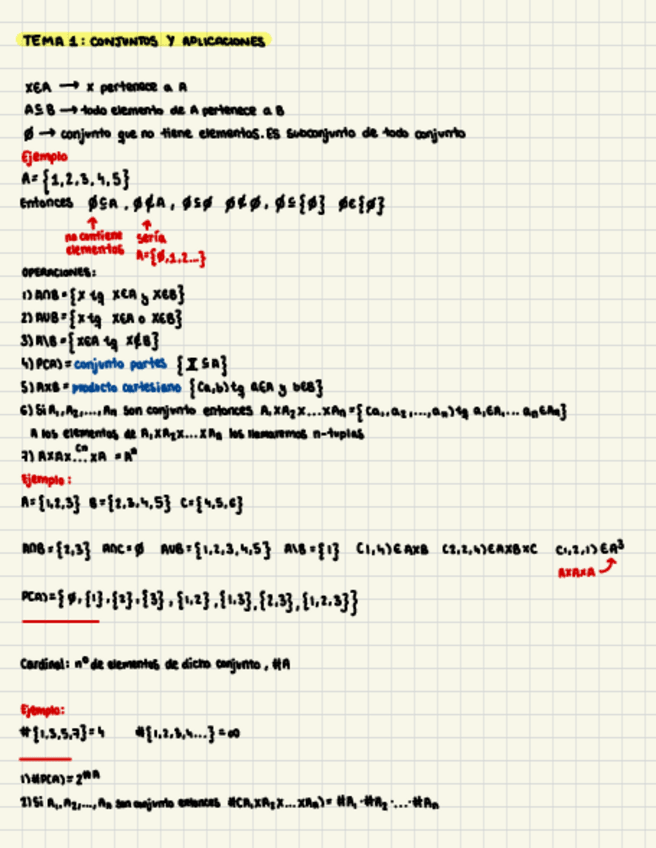 TEMA 1: CONJUNTOS Y APLICACIONES
X∈A → x pertenece a A
A⊆B → todo elemento de A pertenece a B
∅ → conjunto que no tiene elementos. Es subconjunto de todo conjunto
Ejemplo
A={1,2,3,4,5}
Entonces ∅⊆A, ∅∉A, ∅⊆∅ ∅∉∅, ∅⊆{∅} ∅∈{∅}
no contiene elementos
sería A={∅,1,2...}
OPERACIONES:
1) A∩B={x tq x∈A y x∈B}
2) A∪B={x tq x∈A o x∈B}
3) A\B={x∈A tq x∉B}
4) P(A)= conjunto partes {X⊆A}
5) AxB= producto cartesiano {(a,b) tq a∈A y b∈B}
6) Si A₁,A₂,...,Aₙ son conjunto entonces A₁xA₂x...xAₙ={(a₁,a₂,...,aₙ) tq a₁∈A₁... aₙ∈Aₙ}
A los elementos de A₁xA₂x...xAₙ los llamaremos n-tuplas
7) AxAx.⁽ⁿ.xA =Aⁿ
Ejemplo:
A={1,2,3} B={2,3,4,5} C={4,5,6}
A∩B={2,3} A∩C=∅ A∪B={1,2,3,4,5} A\B={1} (1,4)∈AxB (2,2,4)∈AxBxC (1,2,1)∈A³
AxAxA
P(A)={∅,{1},{2},{3},{1,2},{1,3},{2,3},{1,2,3}}
Cardinal: nº de elementos de dicho conjunto, #A
Ejemplo:
#{1,3,5,7}=4 #{1,2,3,4...}=∞
1) #P(A)=2^#A
2) Si A₁,A₂,...,Aₙ son conjunto entonces #(A₁xA₂x...xAₙ)= #A₁·#A₂·...·#Aₙ